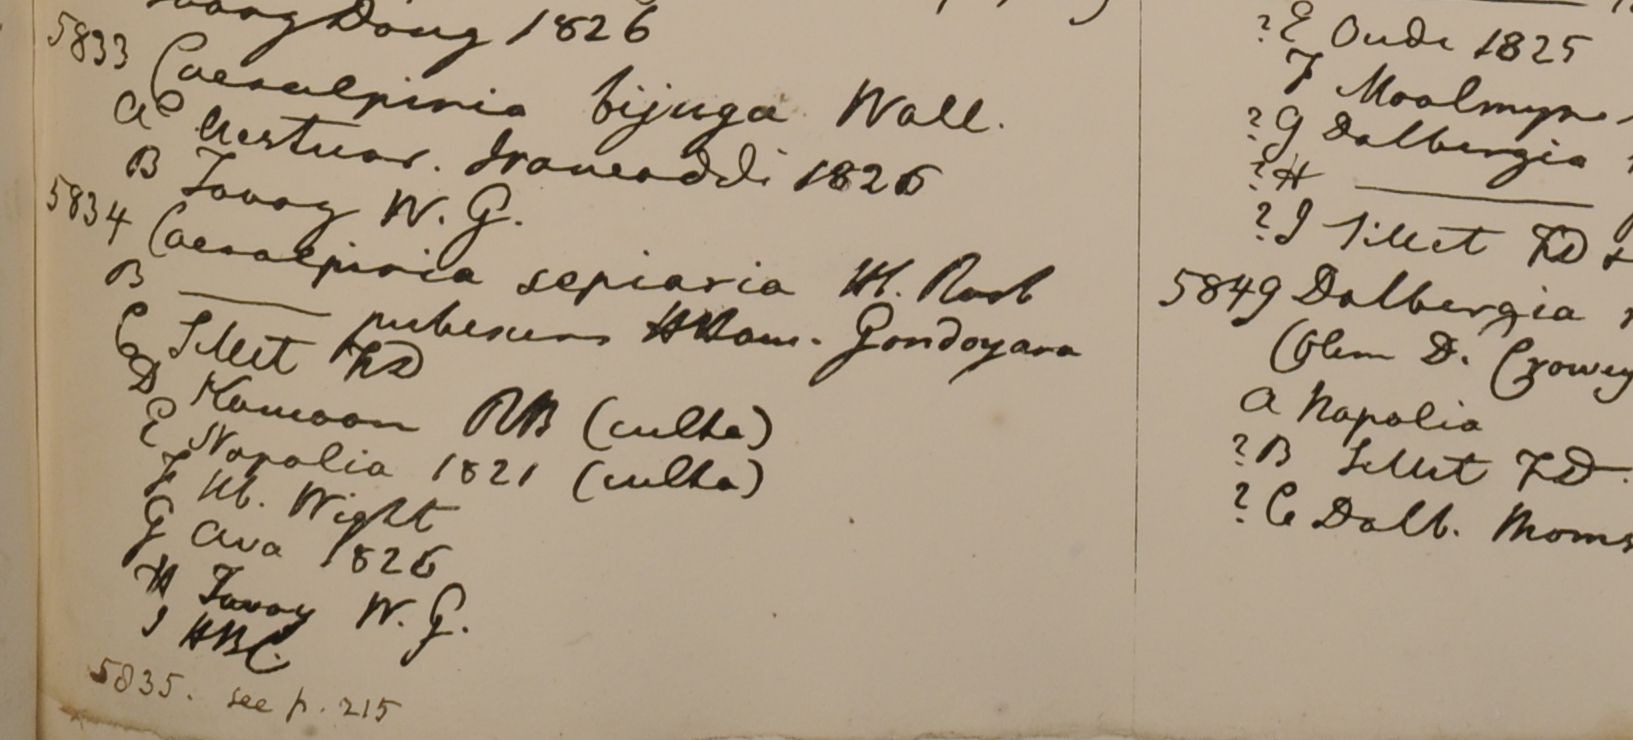 Dong 1826
5833 Caesalpinia bijuga Wall.
A Aestuar. Irawaddi 1826
B Tavoy W. G.
5834 Caesalpinia sepiaria Hb. Roxb
B ——— pubescens HHam. Gondoyara
C Sillet FD
D Kamoon RB (culta)
E Napalia 1821 (culta)
F Hb. Wight
G Ava 1826
H Tavoy W. G.
I HBC.
5835. see p. 215
?E Oude 1825
F Moalmyne
?G Dalbergia
?H ———
?I Sillet FD &
5849 Dalbergia
(Clem D. Crowey
A Napalia
?B Sillet FD.
?C Dalb. Moms